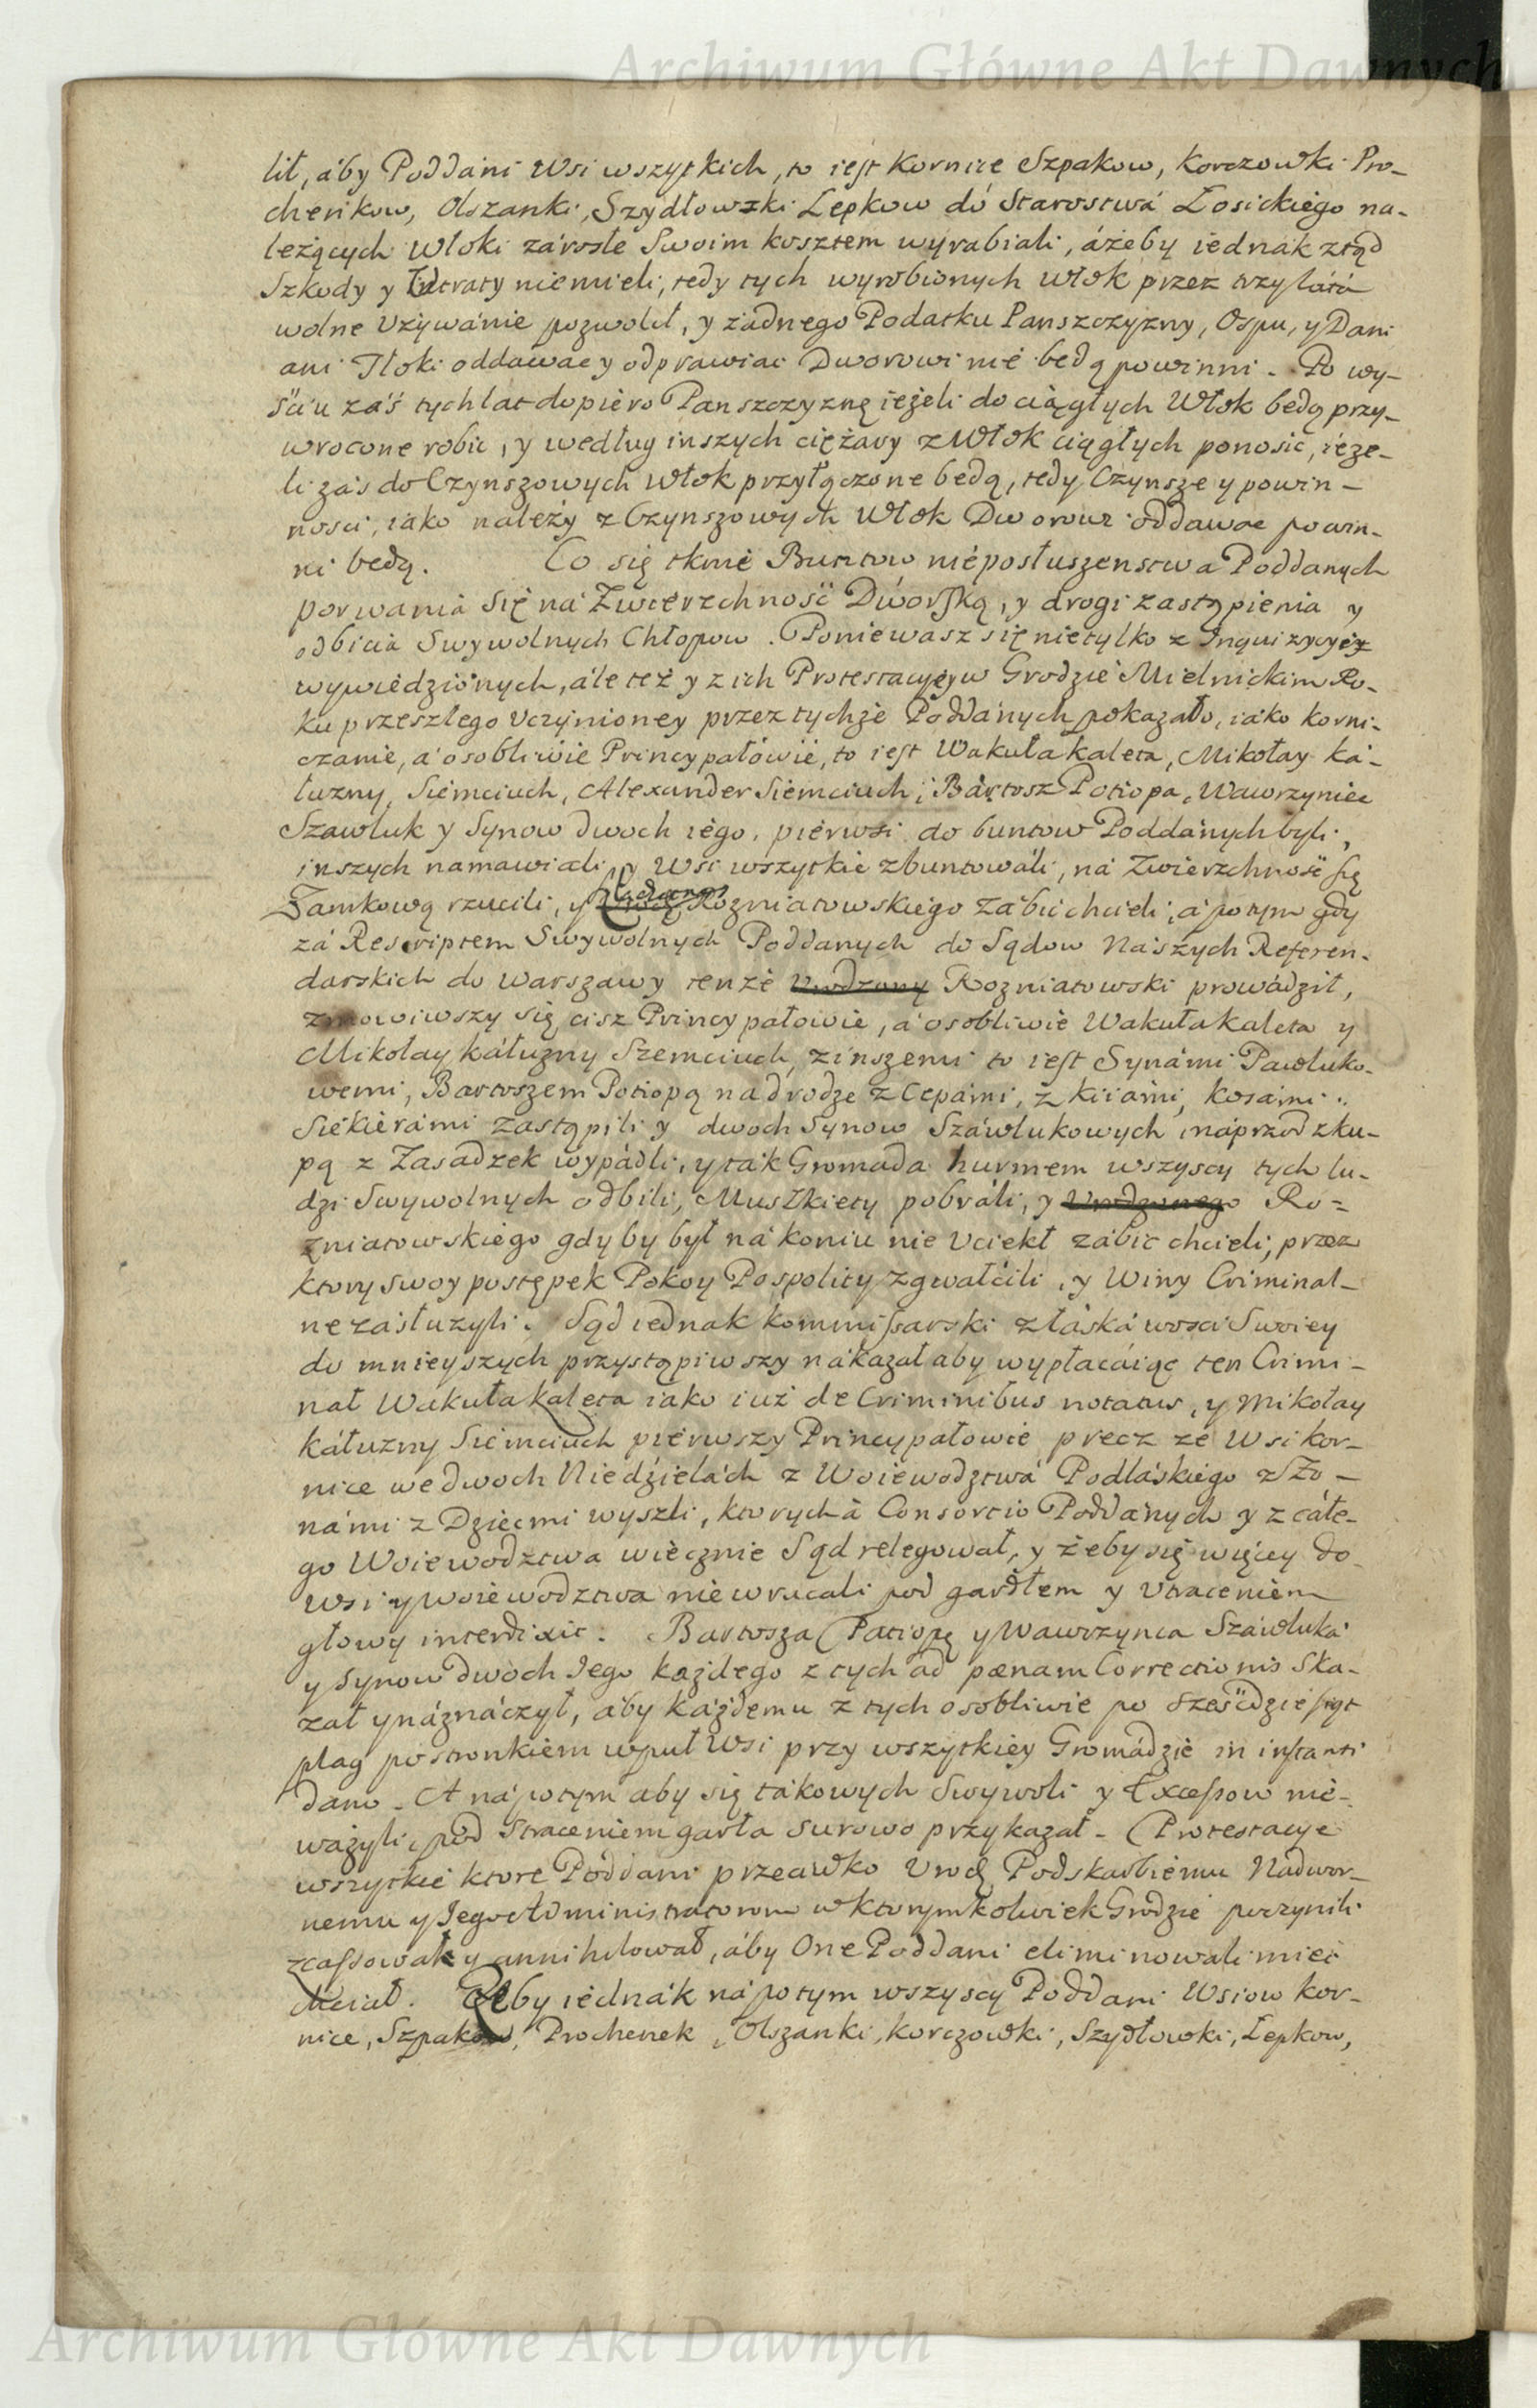 Archiwum Główne Akt Dawnych
lił, áby Poddáni Wsi wszytkich, to iest Kornice Szpakow, Korczowki Pro-
chenkow, Olszanki, Szydłowski Łepkow do Starostwá Łosickiego na-
leżących Włoki zárosłe Swoim kosztem wyrabiali, áżeby iednak ztąd
Szkody y Utraty niemieli, tedy tych wyrobionych włok przez trzy látá
wolne Używánie pozwolił, y żadnego Podatku Panszczyzny, Ospu, y Dani
ani Tłoki oddawac y odprawiac Dworowi nie będą powinni. Po wy-
sciu záś tych lat dopiero Panszczyznę ieżeli do ciągłych Włok będą przy-
wrocone robic, y według inszych ciężary z Włok ciągłych ponosic, ieże-
li záś do Czynszowych Włok przyłączone będą, tedy Czynsze y powin-
nosci, iako należy z Czynszowych Włok Dworowi oddawac powin-
ni będą. Co się tknie Buntow nieposłuszenstwa Poddanych
porwania Się ná Zwierzchność Dworską, y drogi zastąpienia y
odbicia Swywolnych Chłopow. Poniewasz się nietylko z Inquizycyey
wywiedzionych, ále też y z ich Protestacyey w Grodzie Mielnickim Ro-
ku przeszłego Uczynioney przez tychże Poddánych pokazało, iáko Korni-
czanie, á osobliwie Princypałowie, to iest Wakuła Kaleta, Mikołay Ká-
łuzny, Siemciuch, Alexander Siemciuch, Bartosz Potiopa, Wawrzyniec
Szawluk y Synow dwoch iego, pierwsi do buntow Poddánych byli,
inszych namawiali, y Wsi wszytkie zbuntowáli, ná Zwierzchność Się
Zamkową rzucili, y Rozniatowskiego zábic chcieli, á potym gdy
zá Rescriptem Swywolnych Poddanych do Sądow Nászych Referen-
darskich do Warszawy tenże Urodzony Rozniatowski prowádził,
zmowiwszy się cisz Princypałowie, á osobliwie Wakuła Kaleta y
Mikołay Káłuzny Siemciuch, z inszemi to iest Synámi Pawluko-
wemi, Bartoszem Potiopą na drodze z Cepámi, z kiiámi, kosámi
Siekierámi zastąpili y dwoch Synow Száwlukowych náprzod zku-
pą z Zasadzek wypádli, y ták Gromada hurmem wszyscy tych lu-
dzi Swywolnych odbili, Muszkiety pobráli, y Urodzonego Ro-
zniatowskiego gdyby był ná koniu nie Uciekł zábic chcieli, przez
ktory swoy postępek Pokoy Pospolity zgwałcili, y Winy Criminal-
ne zásłużyli. Sąd iednak Kommissarski z łáskáwosci Swoiey
do mnieyszych przystąpiwszy nákazał aby wypłacáiąc ten Crimi-
nał Wakuła Kaleta iako iuż de Criminibus notatus, y Mikołay
Káłuzny Siemciuch pierwszy Princypałowie precz ze Wsi Kor-
nice we dwoch Niedzielách z Woiewodztwá Podláskiego z Żo-
námi z Dziecmi wyszli, ktorych á Consorcio Poddánych y z cáłe-
go Woiewodztwa wiecznie Sąd relegował, y żeby się więcy do
Wsi y Woiewodztwa nie wracali pod gardłem y Utraceniem
głowy interdixit. Bartosza Potiopę y Wawrzynca Szawluká
y Synow dwoch Jego każdego z tych ad pænam Correctionis Ska-
zał y náznáczył, áby każdemu z tych osobliwie po sześćdziesiąt
plag postronkiem wpuł Wsi przy wszytkiey Gromádzie in instanti
dano. A nápotym aby się tákowych Swywoli y Excessow nie-
ważyli, pod Straceniem garła surowo przykazał. Protestacye
wszytkie ktore Poddani przeciwko Urodz Podskarbiemu Nadwor-
nemu y Jego Administratorom w ktorymkolwiek Grodzie poczynili
zcassował y annihilował, áby One Poddani eliminowali mieć
chciał. Ażeby iednák nápotym wszyscy Poddani Wsiow Kor-
nice, Szpakow, Prochenek, Olszanki, Korczowki, Szydłowski, Łepkow,
Archiwum Główne Akt Dawnych